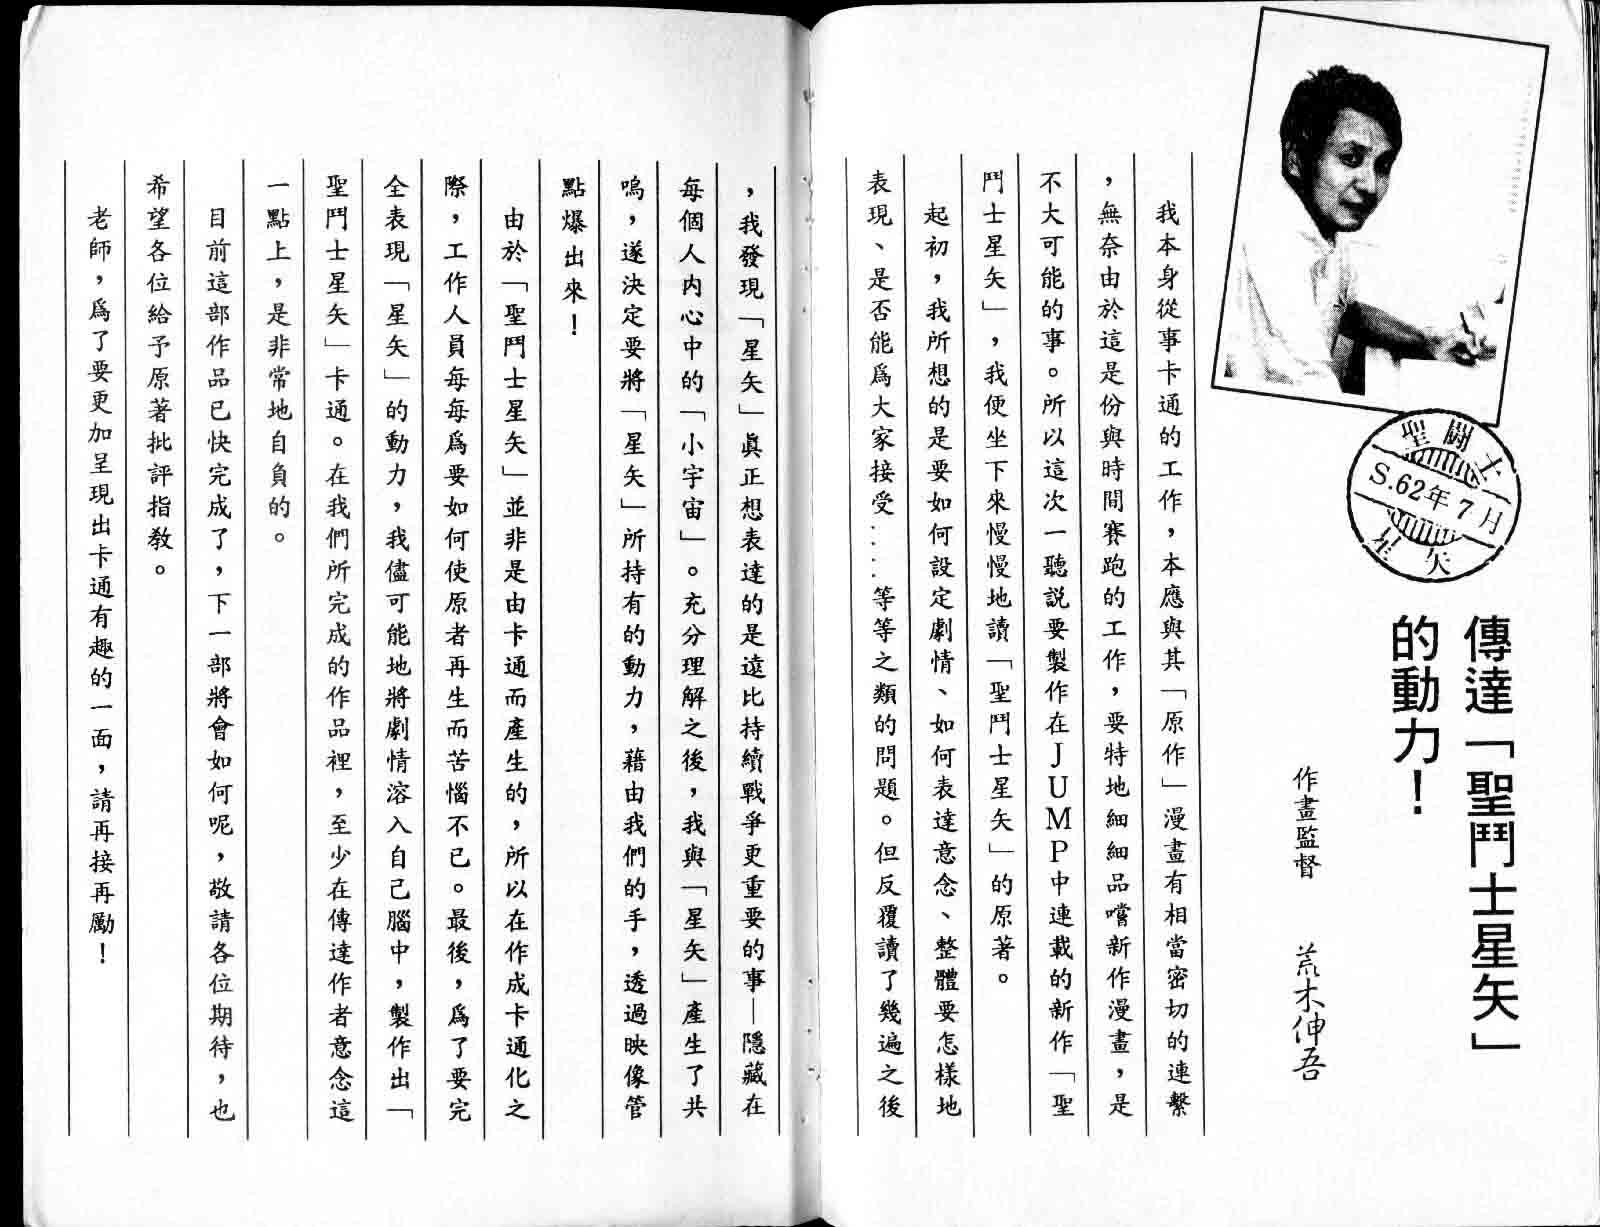 聖闘士
S.62年7月
星矢
傳達「聖鬥士星矢」
的動力！
作畫監督　荒木伸吾
我本身從事卡通的工作，本應與其「原作」漫畫有相當密切的連繫
，無奈由於這是份與時間賽跑的工作，要特地細細品嚐新作漫畫，是
不大可能的事。所以這次一聽説要製作在JUMP中連載的新作「聖
鬥士星矢」，我便坐下來慢慢地讀「聖鬥士星矢」的原著。
起初，我所想的是要如何設定劇情、如何表達意念、整體要怎樣地
表現、是否能爲大家接受……等等之類的問題。但反覆讀了幾遍之後
，我發現「星矢」眞正想表達的是遠比持續戰爭更重要的事—隱藏在
每個人内心中的「小宇宙」。充分理解之後，我與「星矢」產生了共
鳴，遂決定要將「星矢」所持有的動力，藉由我們的手，透過映像管
點爆出來！
由於「聖鬥士星矢」並非是由卡通而產生的，所以在作成卡通化之
際，工作人員每每爲要如何使原者再生而苦惱不已。最後，爲了要完
全表現「星矢」的動力，我儘可能地將劇情溶入自己腦中，製作出「
聖鬥士星矢」卡通。在我們所完成的作品裡，至少在傳達作者意念這
一點上，是非常地自負的。
目前這部作品已快完成了，下一部將會如何呢，敬請各位期待，也
希望各位給予原著批評指教。
老師，爲了要更加呈現出卡通有趣的一面，請再接再勵！